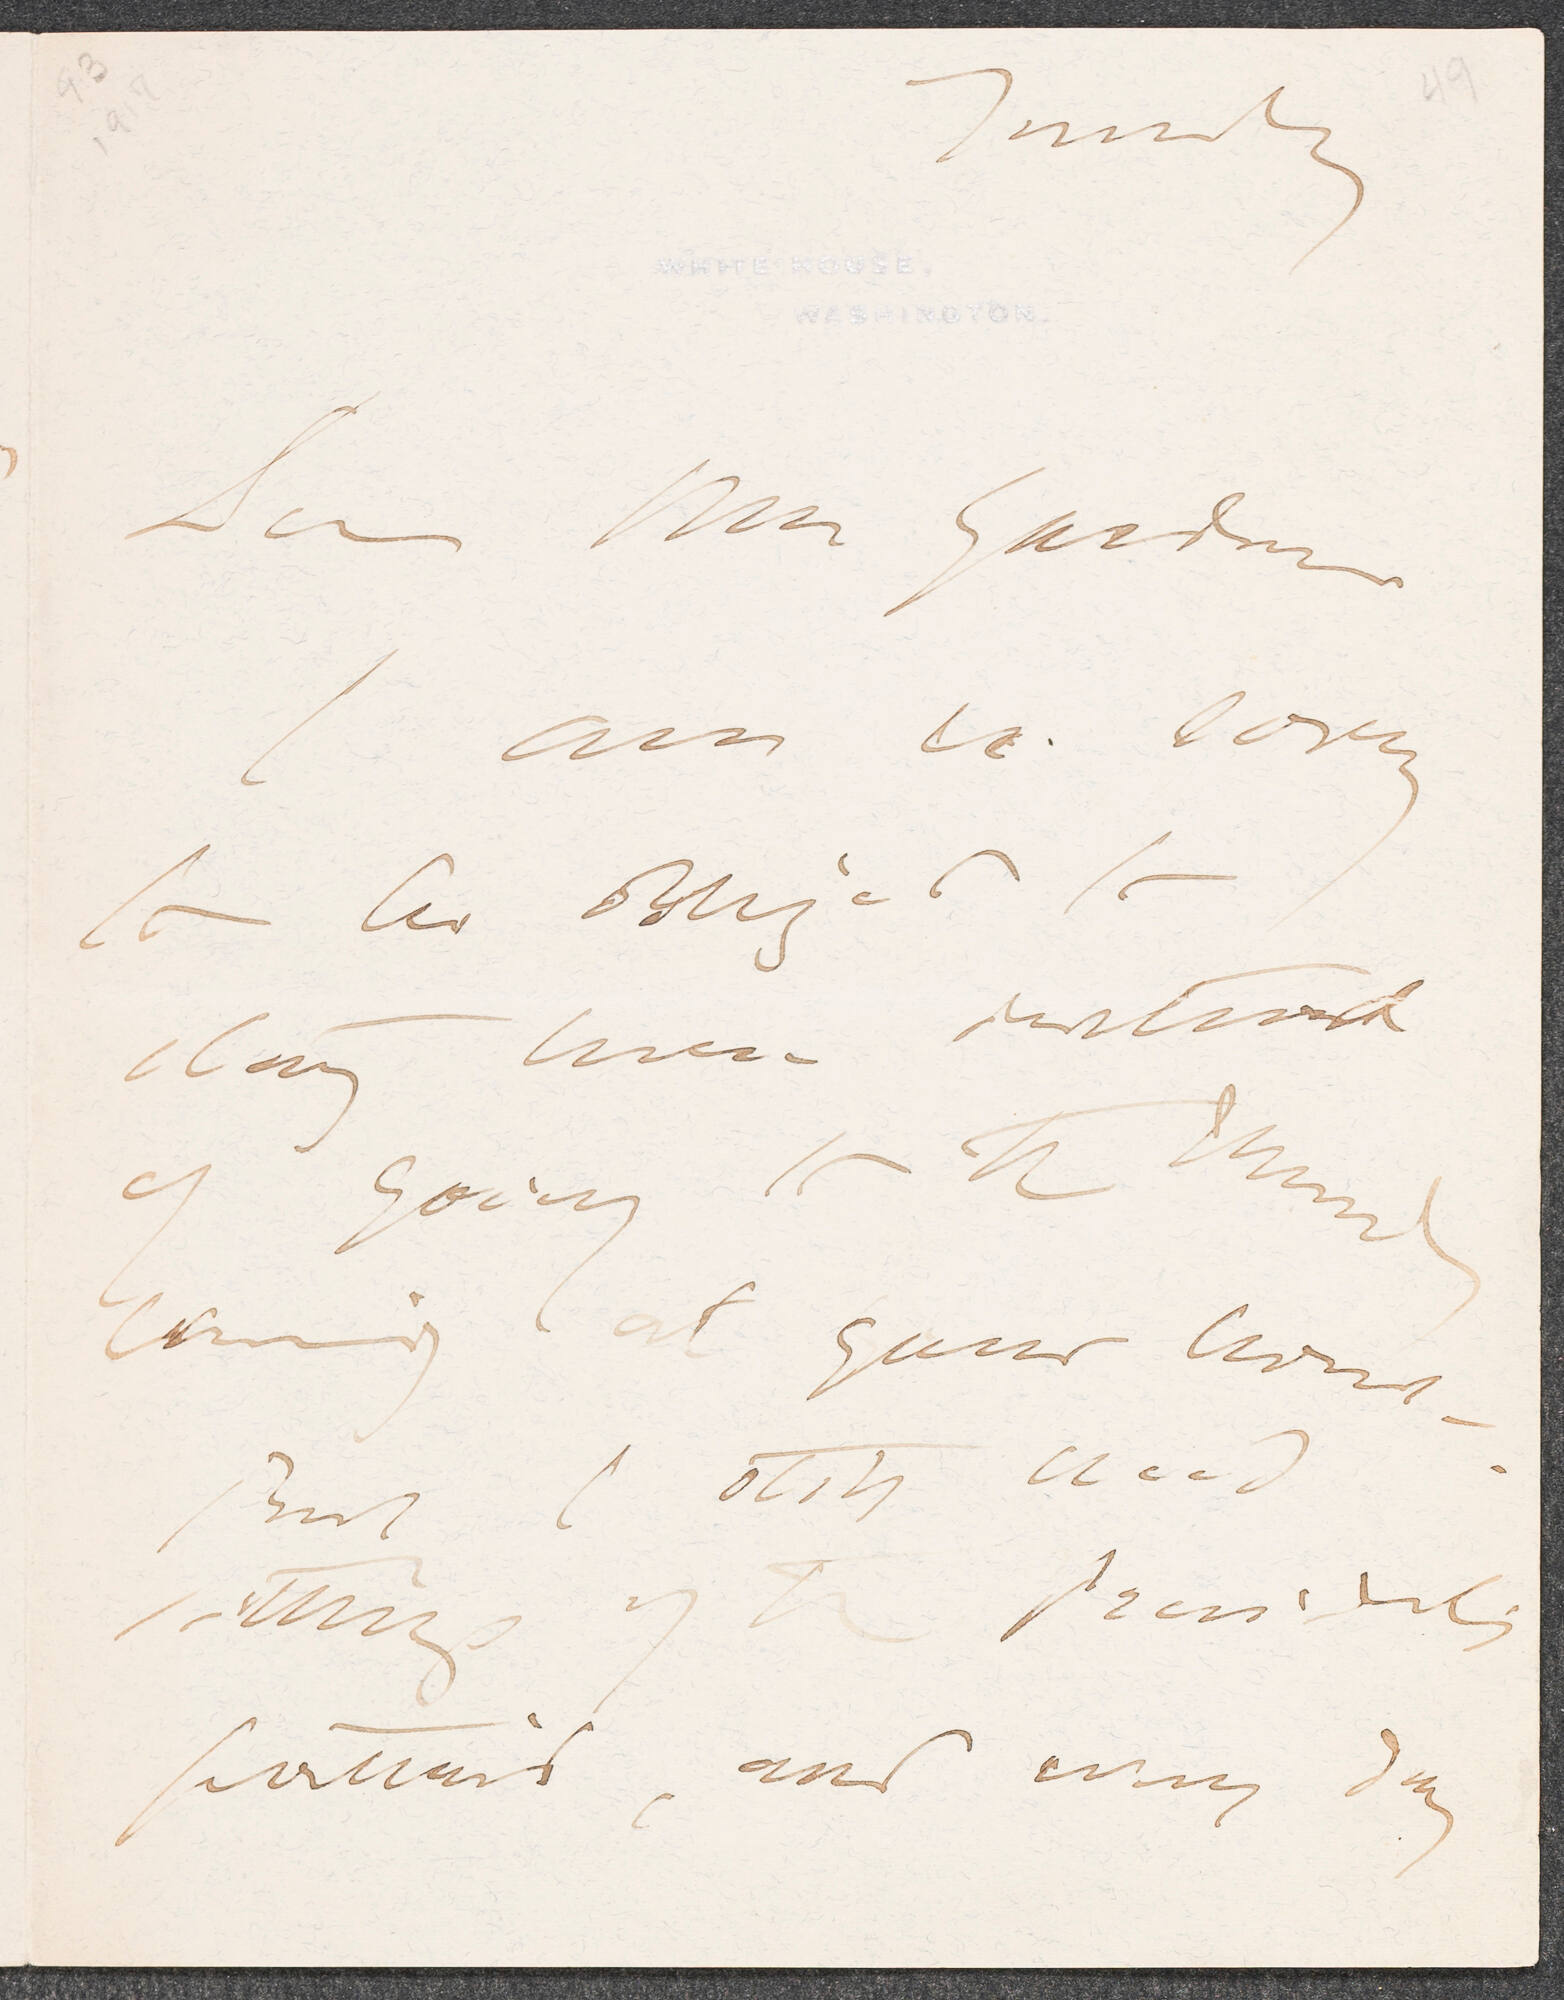 93
1917
49
Tuesday
WHITE HOUSE.
WASHINGTON.
Dear Mrs Gardner
I am so sorry
to be obliged to
stay here instead
of going to the
coming at your house.
But I still need
sittings of the President's
portrait, and every day